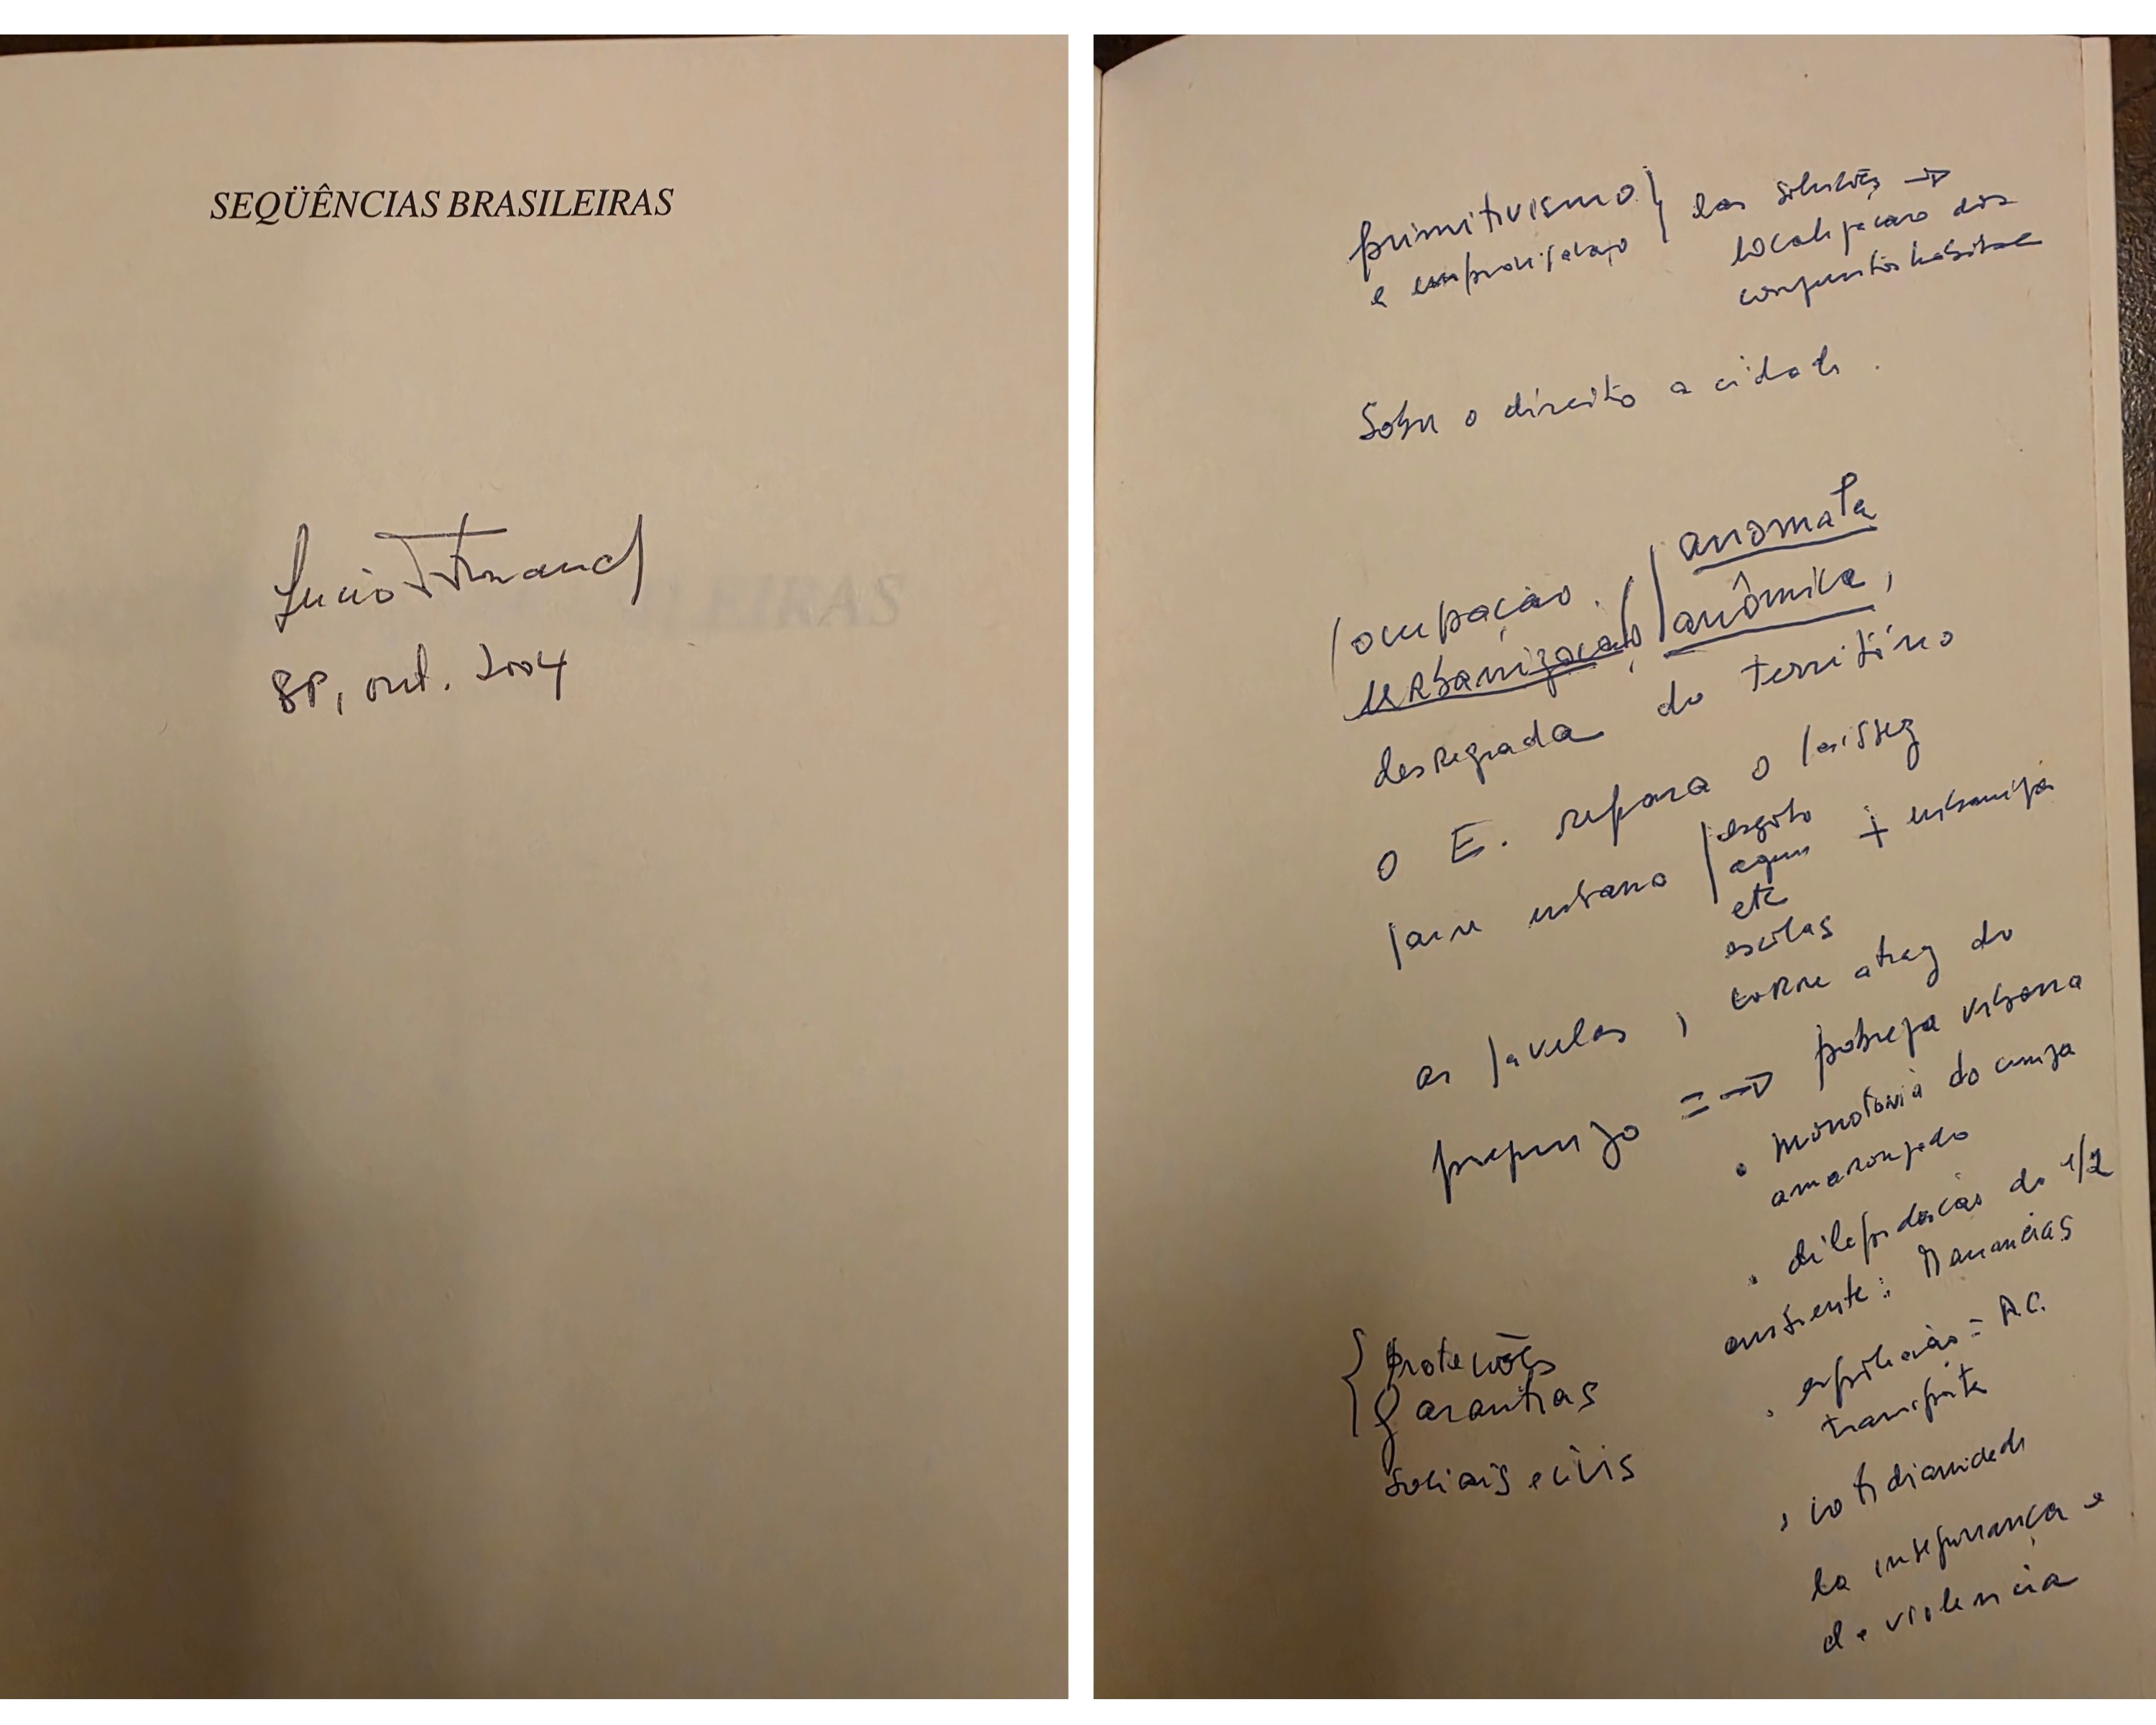 SEQÜÊNCIAS BRASILEIRAS
Lucio
SP, out. 2004
primitivismo } das soluções →
e improvisação localização dos
conjuntos habitac
Sobre o direito a cidade.
ocupação. anomala
urbanização anômica,
desregrada do território
o E. repara o laissez
faire urbano | esgoto + urbaniza
agua
etc
escolas
as favelas, corre atraz do
prejuizo =→ pobreza urbana
• monotonia do cinza
amarronzado
• dilapidação do 1/2
ambiente: Mananciais
• espoliação = A.C.
transporte
• cotidianidade
da insegurança e
da violencia
{ proteções
garantias
sociais e civis